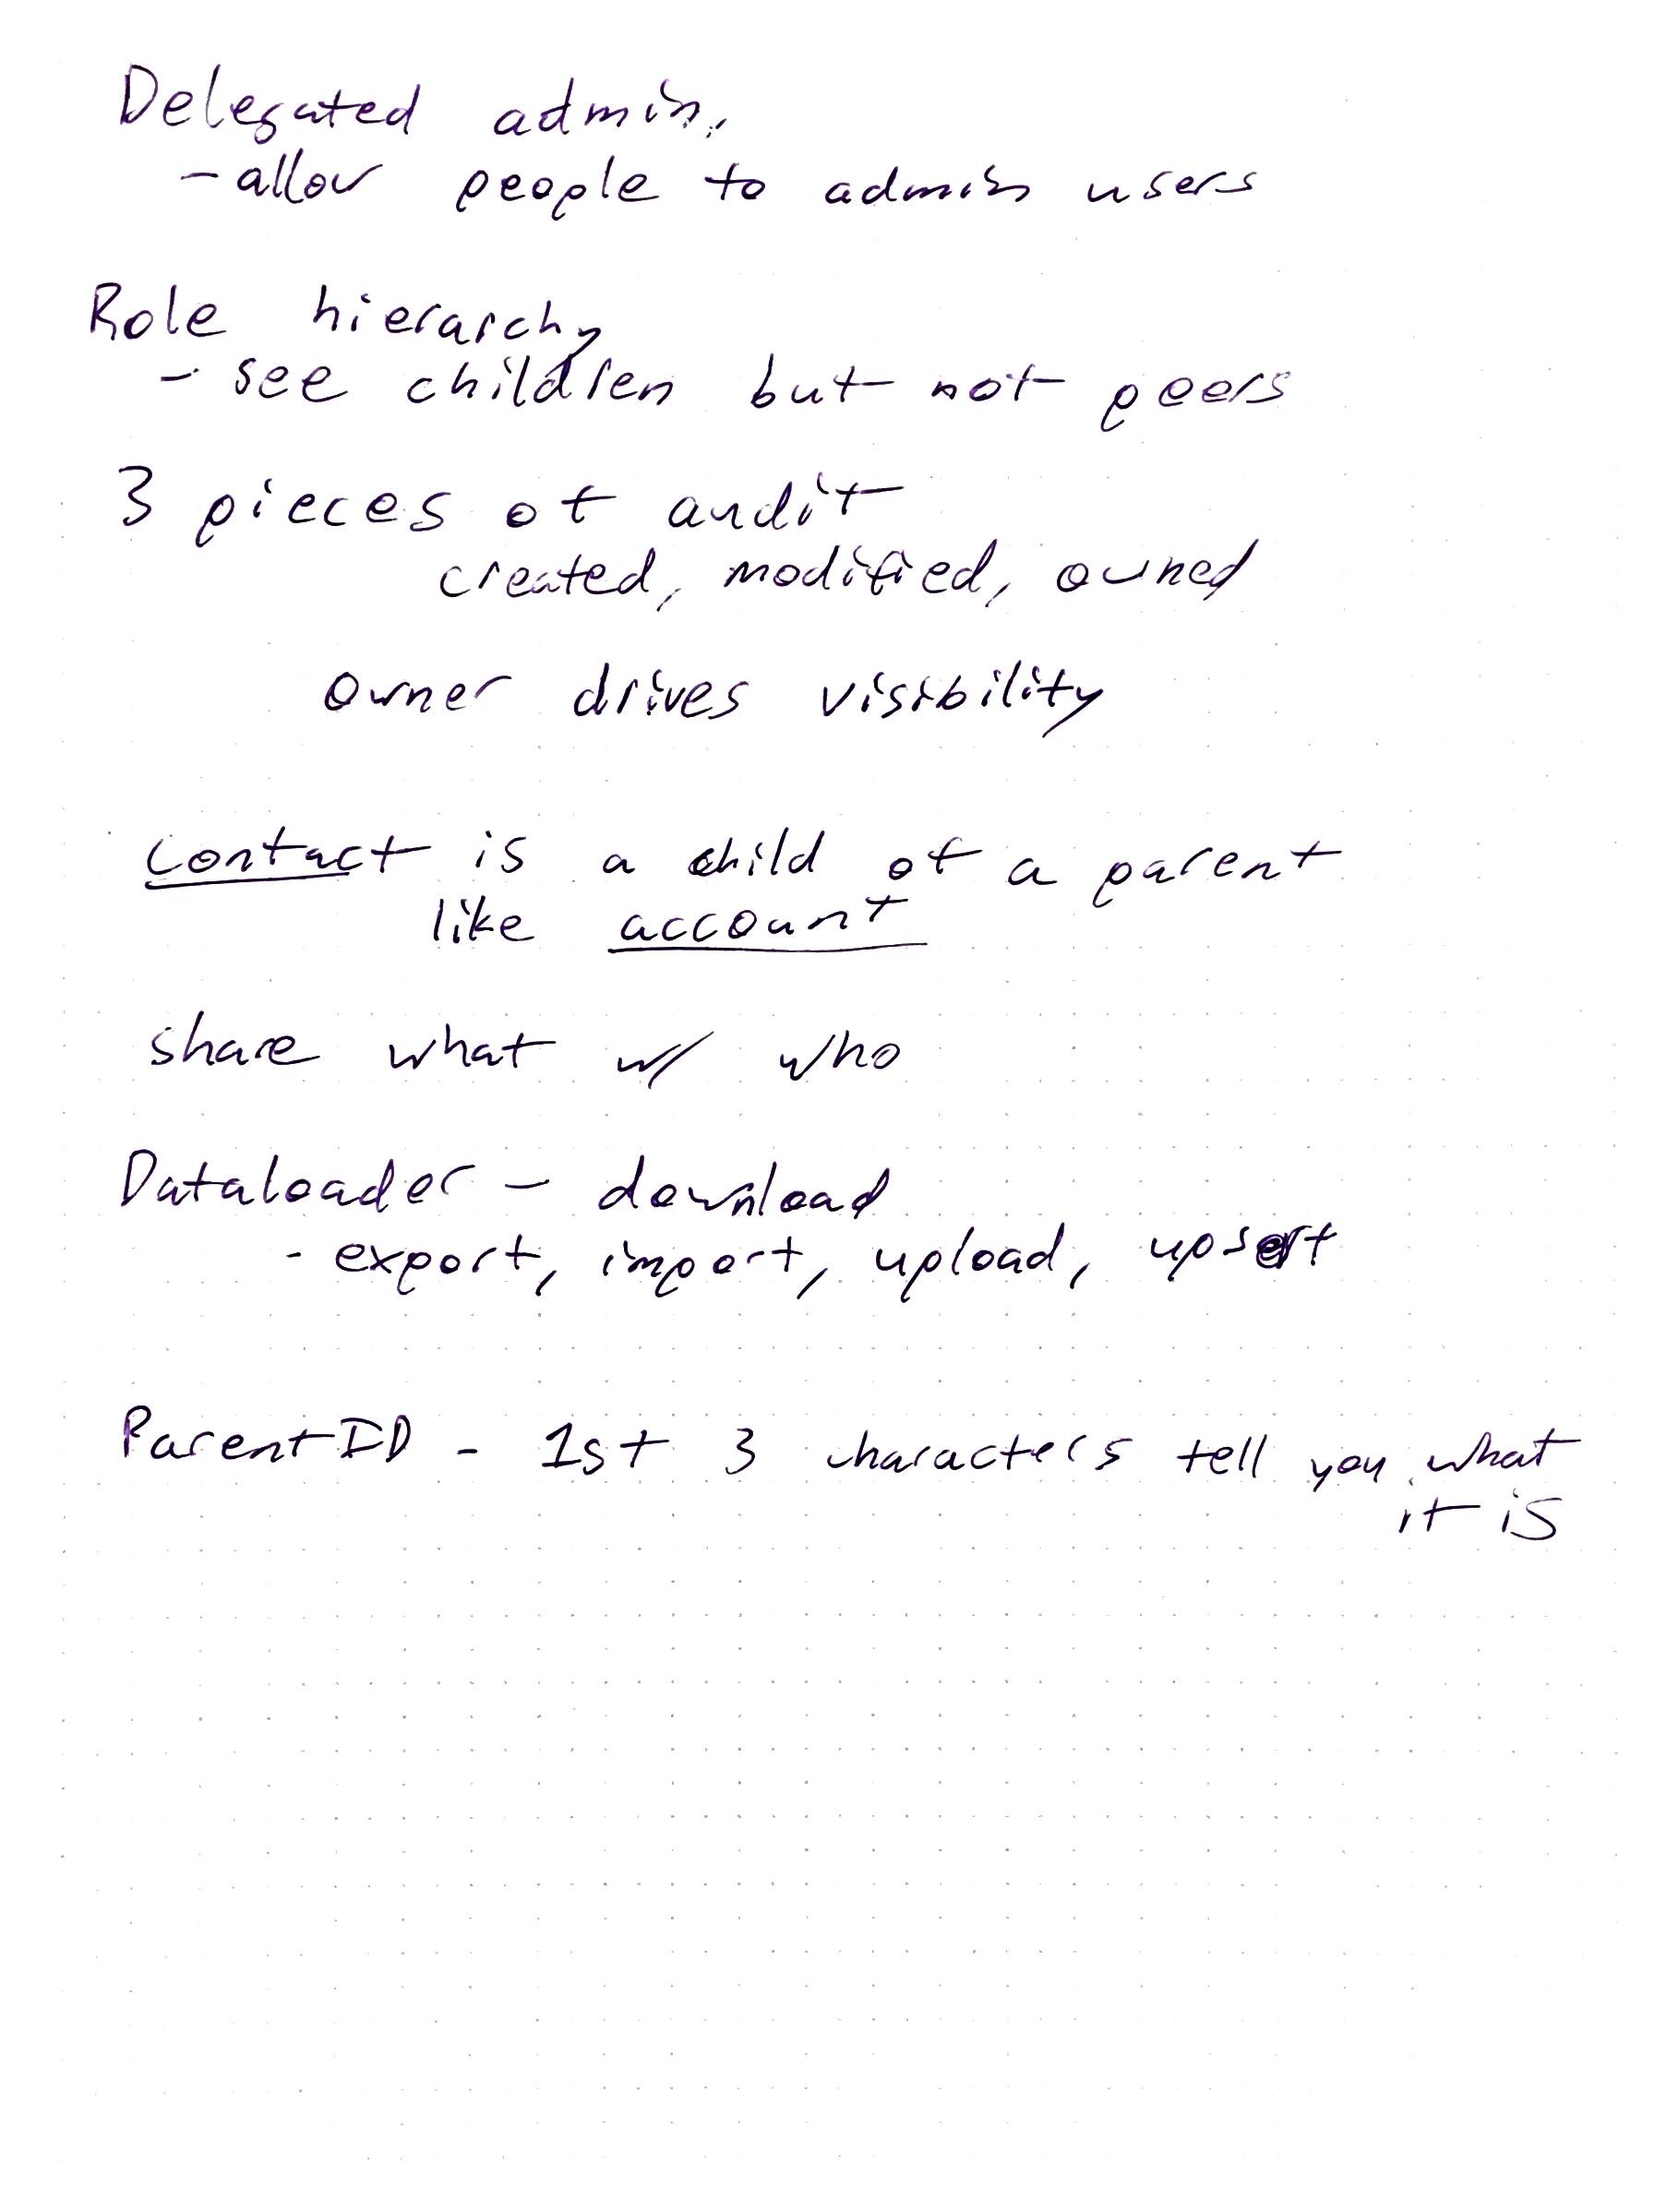 Delegated admin.
- allow people to admin users
Role hierarchy
- see children but not peers
3 pieces of audit
created, modified, owned
owner drives visibility
contact is a child of a parent
like account
share what w/ who
Dataloader - download
- export, import, upload, upsert
ParentID - 1st 3 characters tell you what
it is